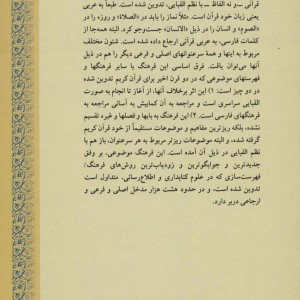 قرآنی ــ و نه الفاظ ــ با نظم الفبایی، تدوین شده است. طبعاً به عربی
یعنی زبان خود قرآن است. مثلاً نماز را باید در «الصلاة» و روزه را در
«الصوم» و انسان را در ذیل «الانسان» جست‌وجو کرد. البته همه‌جا از
کلمات فارسی، به عربی قرآنی ارجاع داده شده است. شئون مختلف
مربوط به اینها و همهٔ سرعنوانهای اصلی و فرعی دیگر را هم در ذیل
آنها می‌توان یافت. فرق اساسی این فرهنگ با سایر فرهنگها و
فهرستهای موضوعی که در دو قرن اخیر برای قرآن کریم تدوین شده
در دو چیز است: ۱) این اثر برخلاف آنها، از آغاز تا انجام به صورت
الفبایی سراسری است و مراجعه به آن کمابیش به آسانی مراجعه به
فرهنگهای فارسی است. ۲) این فرهنگ به بابها و فصلها و غیره تقسیم
نشده، بلکه ریزترین مفاهیم و موضوعات مستقیماً از خود قرآن کریم
گرفته شده، و البته موضوعات ریزتر مربوط به هر سرعنوان، باز هم با
نظم الفبایی در ذیل آن آمده است. این فرهنگ موضوعی، بر وفق
جدیدترین و جوابگوترین و زودیاب‌ترین روش‌های فرهنگ/
فهرست‌سازی که در علوم کتابداری و اطلاع‌رسانی، متداول است
تدوین شده است، و در حدود هشت هزار مدخل اصلی و فرعی و
ارجاعی دربر دارد.